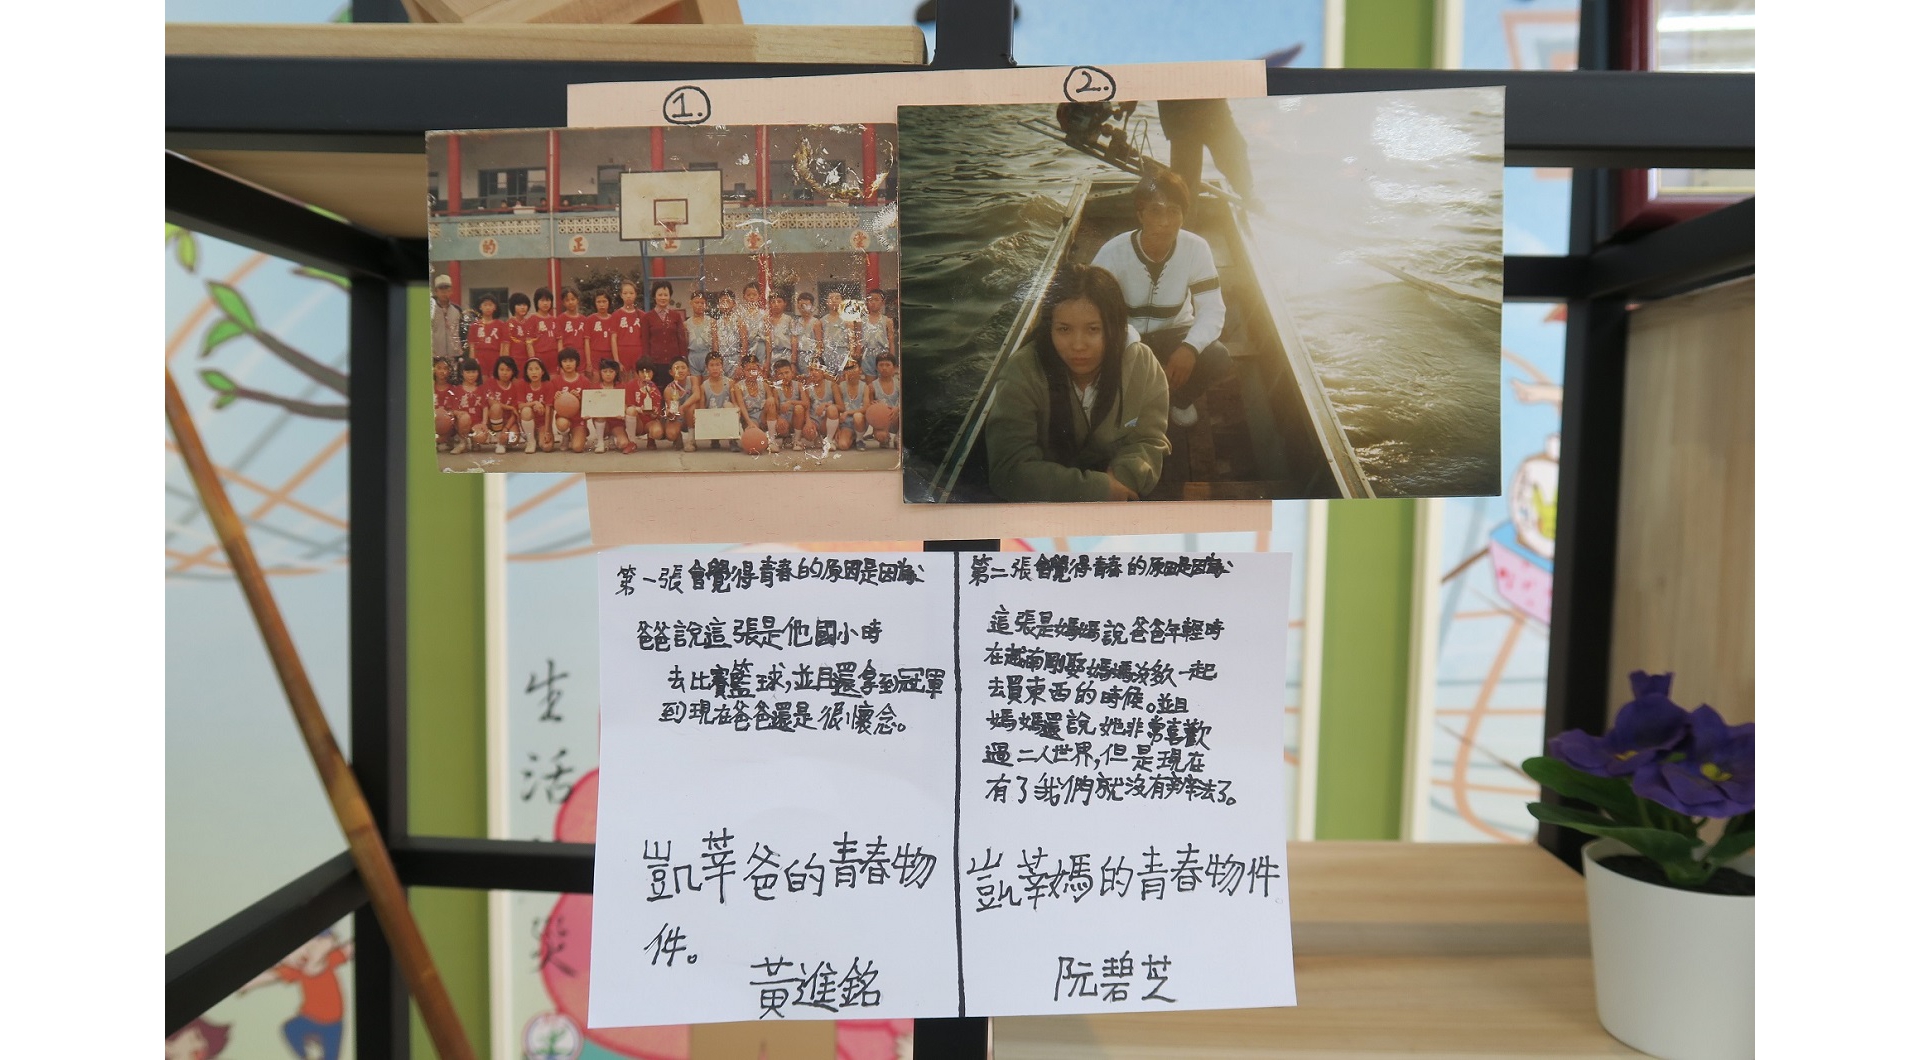 1.
2.
的 正 正 堂 堂
第一張會覺得青春的原因是因為:
爸爸說這張是他國小時
去比賽籃球,並且還拿到冠軍
到現在爸爸還是很懷念。
凱莘爸的青春物
件。
黃進銘
第二張會覺得青春的原因是因為:
這張是媽媽說爸爸年輕時
在越南剛娶媽媽沒多久一起
去買東西的時候。並且
媽媽還說她非常喜歡
過二人世界,但是現在
有了我們就沒有辦法了。
凱莘媽的青春物件
阮碧芝
生
活